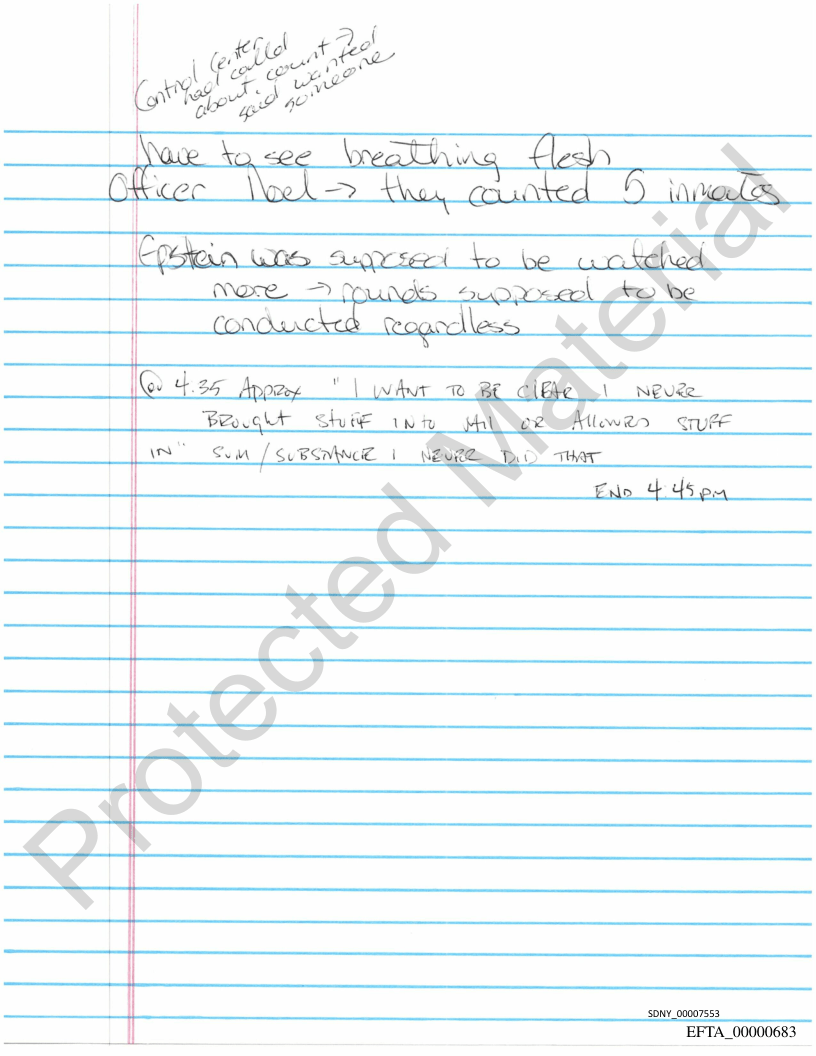 Control Center
had called
about count →
said wanted
someone
have to see breathing flesh
Officer Noel → they counted 5 inmates
Epstein was supposed to be watched
more → rounds supposed to be
conducted regardless
@ 4:35 APPROX "I WANT TO BE CLEAR I NEVER
BROUGHT STUFF INTO JAIL OR ALLOWED STUFF
IN" SUM/SUBSTANCE I NEVER DID THAT
END 4:45 PM
Protected Material
SDNY_00007553
EFTA_00000683